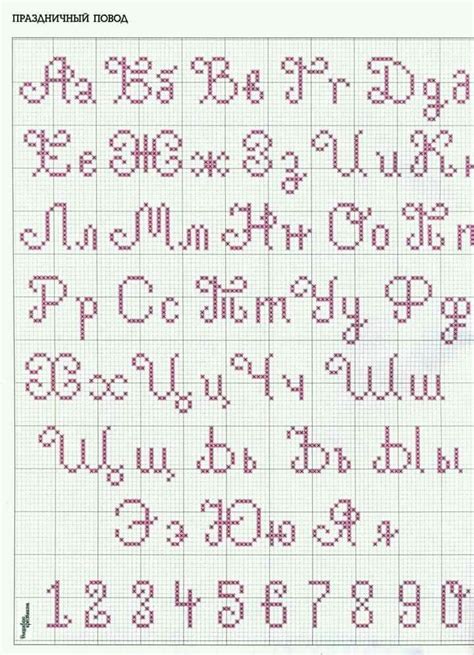 ПРАЗДНИЧНЫЙ ПОВОД
Аа Бб Вв Гг Дд
Ее Жж Зз Ии К
Лл Мм Нн Оо П
Рр Сс Тт Уу Фф
Хх Цц Чч Шш
Щщ Ь Ъ Ы
Ээ Юю Яя
1 2 3 4 5 6 7 8 9 0